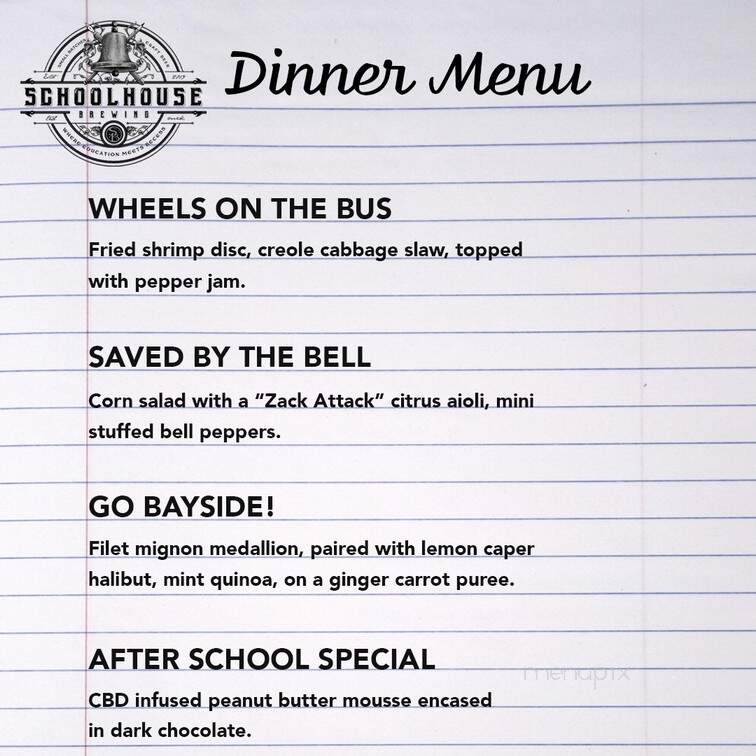 SMALL BATCHES
CRAFT BEER
EST
2019
SCHOOLHOUSE
BREWING
WHERE EDUCATION MEETS RECESS
Dinner Menu
WHEELS ON THE BUS
Fried shrimp disc, creole cabbage slaw, topped
with pepper jam.
SAVED BY THE BELL
Corn salad with a “Zack Attack” citrus aioli, mini
stuffed bell peppers.
GO BAYSIDE!
Filet mignon medallion, paired with lemon caper
halibut, mint quinoa, on a ginger carrot puree.
AFTER SCHOOL SPECIAL
menupix
CBD infused peanut butter mousse encased
in dark chocolate.